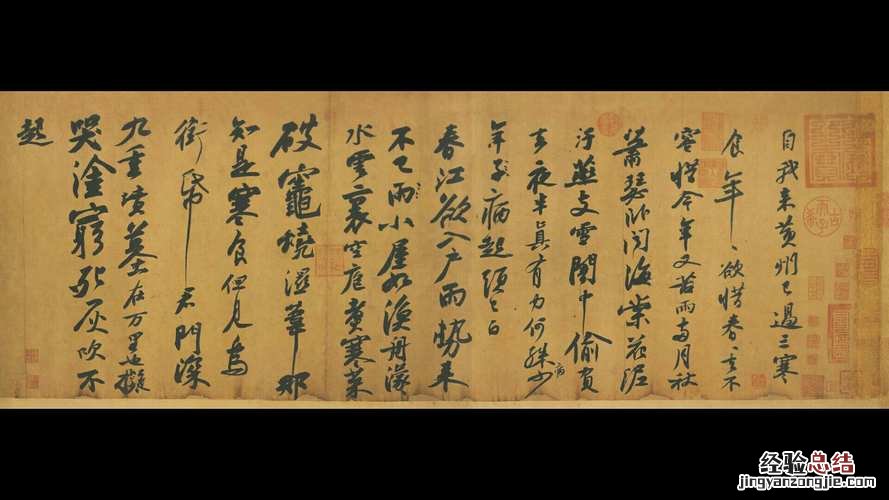 自我来黄州已過三寒
食年〻欲惜春〻去不
容惜今年又苦雨兩月秋
蕭瑟卧聞海棠花泥
汙燕支雪闇中偷負
去夜半真有力何殊少
病
年子病起頭已白
春江欲入户雨勢来
不已雨小屋如漁舟濛〻
水雲裏空庖煮寒菜
破竈燒濕葦那
知是寒食但見烏
銜帋君門深
九重墳墓在万里也擬
哭塗窮死灰吹不
起
经验总结
jingyanzongjie.com